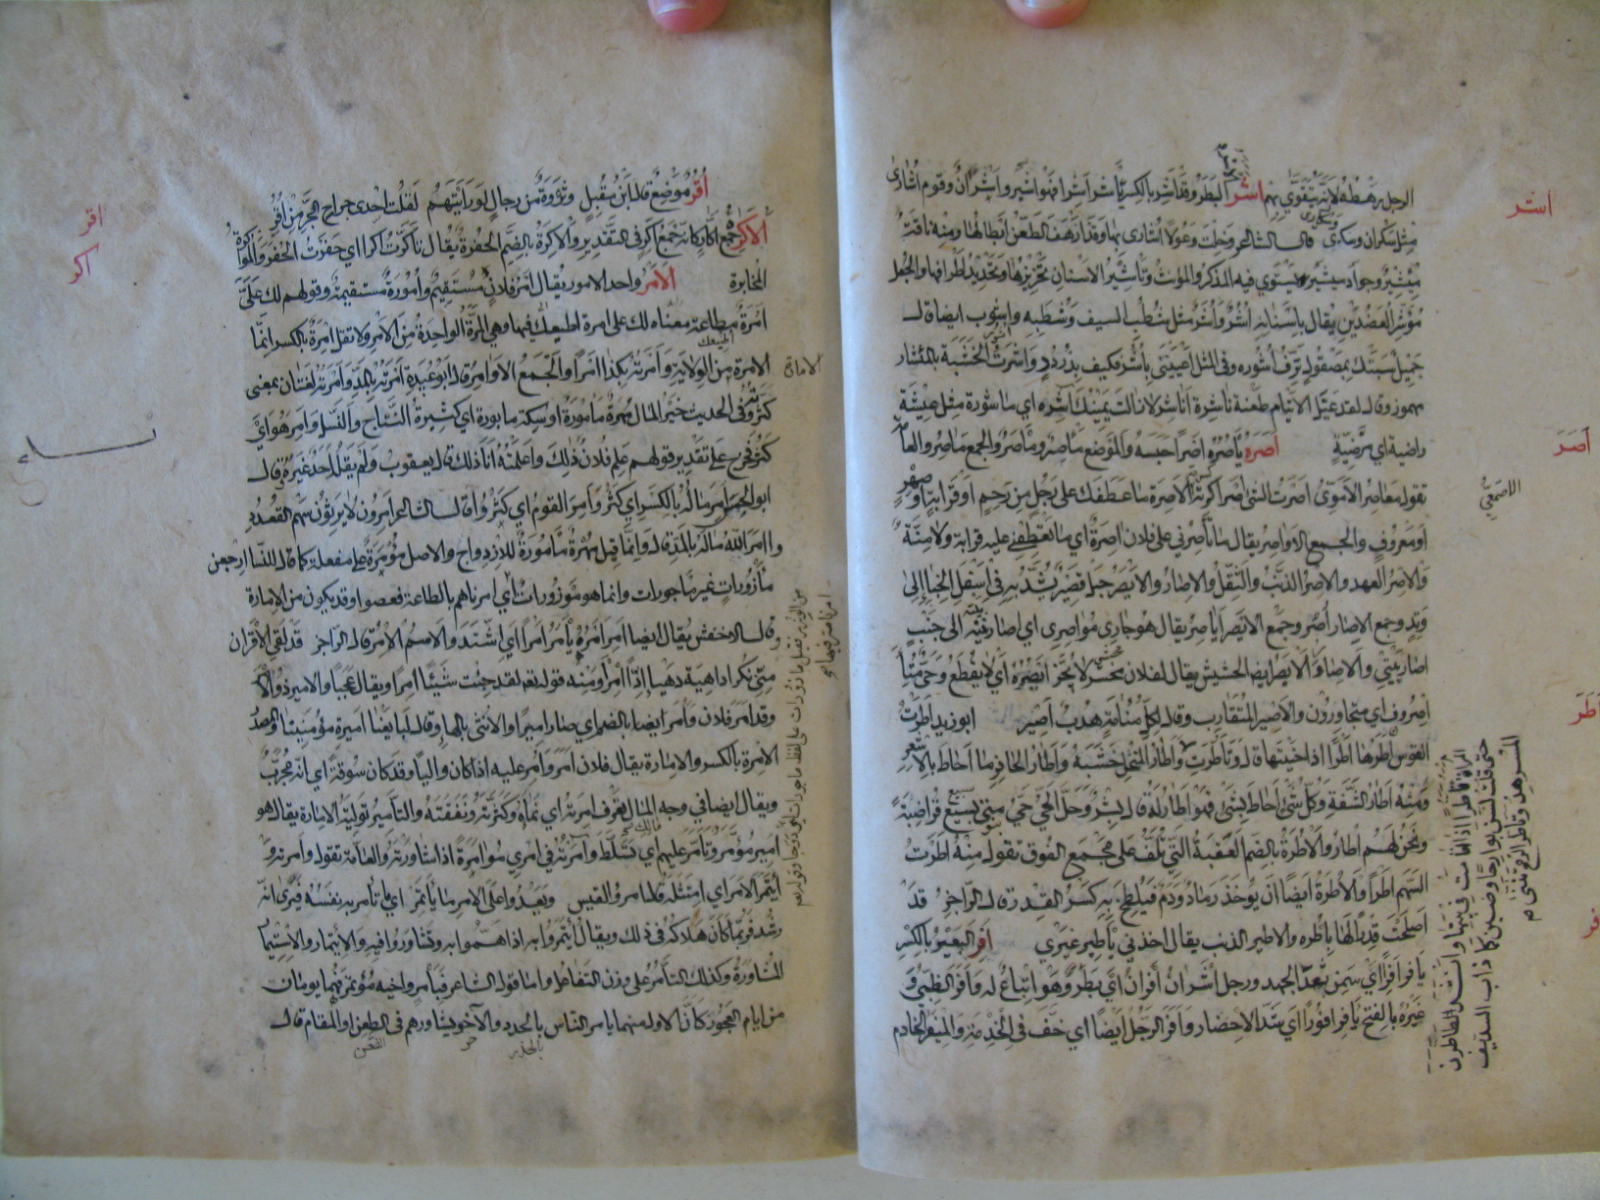 الرجل رهطه لانه يتقوى بهم اشر الاشر البطر وقد اشر بالكسر ياشر اشرا فهو اشر واشران وقوم اشارى
مثل سكران وسكارى قال الشاعر وخلت وعولا اشارى بها وقد ازهف الطعن ابطالها ومنه ناقة
مئشير وجواد مئشير يستوي فيه المذكر والمؤنث وتاشير الاسنان تحزيزها وتحديد اطرافها والجعل
مؤشر العضدين يقال باسنانه اشر واشر مثل شطب السيف وشطبه واشور ايضا قال
جميل سبتك بمصقول ترف اشوره وفي المثل اعييتني باشر فكيف بدردر واشرت الخشبة بالمئشار
مهموز وقال لقد عيل الايتام طعنة ناشرة اناشر لا زالت يمينك آشره اي ماشورة مثل عيشة
راضية اي مرضية اصره ياصره اصرا حبسه والموضع ماصر وماصر والجمع مآصر والعامة
تقول معاصر الاموي اصرت الشي اصرا كسرته الآصرة ما عطفك على رجل من رحم او قرابة او صهر
او معروف والجمع الاواصر يقال ما تاصرني على فلان آصرة اي ما تعطفني عليه قرابة ولا منة
والاصر العهد والاصر الذنب والثقل والاصار والايصر حبل قصير يشد به في اسفل الخباء الى
وتد وجمع الاصار اصر وجمع الايصر اياصر يقال هو جاري مواصري اي اصار بيته الى جنب
اصار بيتي والاصار والايصر ايضا الحشيش يقال لفلان محش لا يجز ايصره اي لا يقطع وحي متآ
صرون اي متجاورون والاصير المتقارب وقال لكل منامة هدب اصير ابو زيد اطرت
القوس آطرها اطرا اذا حنيتها قال وتاطرت واطار المنخل خشبه واطار الحافر ما احاط بالاشعر
ومنه اطار الشفة وكل شي احاط بشي فهو اطار له قال بشر وحل الحي حي بني سبيع قراضبة
ونحن لهم اطار والاطرة بالضم العقبة التي تلف على مجمع الفوق تقول منه اطرت
السهم اطرا والاطرة ايضا ان يوخذ رماد ودم فيلطخ به كسر القدر قال الراجز قد
اصلحت قدرا لها باطره والاطير الذنب يقال اخذني باطير غيري افر البعير بالكسر
يافر افرا اي سمن بعد الجهد ورجل اشران افران اي بطر وهو اتباع له وافر الظبي و
غيره بالفتح يافر افورا اي شد الاحضار وافر الرجل ايضا اي خف في الخدمة والمئفر الخادم
اشر
اصر
الاصمعي
اطر
افر
اقر موضع قال ابن مقبل وثروة من رجال لو رايتهم لقلت احدى حراج الجر من اقر
الاكر جمع اكار كانه جمع آكر في التقدير والاكرة بالضم الحفرة يقال تاكرت اكرا اي حفرت الحفر والمواكرة
المخابرة الامر واحد الامور يقال امر فلان مستقيم واموره مستقيمة وقولهم لك علي
امرة مطاعة معناه لك علي امرة اطيعك فيها وهي المرة الواحدة من الامر ولا تقل امرة بالكسر انما
الامرة من الولاية وامرته بكذا امرا والجمع الاوامر قال ابو عبيدة آمرته بالمد وامرته لغتان بمعنى
كثرته وفي الحديث خير المال مهرة مامورة او سكة مابورة اي كثيرة النتاج والنسل وامر هو اي
كثر فخرج على تقدير قولهم علم فلان ذلك واعلمته انا ذلك قال يعقوب ولم يقله احد غيره قال
ابو الحسن امر ماله بالكسر اي كثر وامر القوم اي كثروا قال الشاعر امرون لا يرثون سهم القعدد
وآمر الله ماله بالمد قال وانما قيل مهرة مامورة للازدواج والاصل مؤمرة على مفعلة كما قال للنسا ارجعن
مازورات غير ماجورات وانما هو موزورات اي امرناهم بالطاعة فعصوا وقد يكون من الامارة
قال الاخفش يقال ايضا امر امره يامر امرا اي اشتد والاسم الامر قال الراجز قد لقي الاقران
مني نكرا داهية دهيا ادا امرا ومنه قوله تعالى لقد جئت شيئا امرا ويقال عجبا والامير ذو الامر
وقد امر فلان وامر ايضا بالضم اي صار اميرا والانثى بالهاء وقال لبايعنا اميرة مؤمنينا والمصدر
الامرة بالكسر والامارة يقال فلان امر وامر عليه اذا كان واليا وقد كان سوقة اي انه مجرب
ويقال ايضا في وجه المال تعرف امرته اي نماه وكثرته ونفقته والتامير تولية الامارة يقال هو
امير مؤمر وتامر عليهم اي تسلط وآمرته في امري مؤامرة اذا شاورته والعامة تقول وامرته و
ائتمر الامر اي امتثله قال امرو القيس ويعدو على المر ما ياتمر اي ما تامره به نفسه فيرى انه
رشد فربما كان هلاكه في ذلك ويقال ائتمروا به اذا هموا به وتشاوروا فيه والايتمار والاستيمار
المشاورة وكذلك التآمر على وزن التفاعل واما قول الشاعر فبآمر واخيه مؤتمر فهما يومان
من ايام العجوز كان الاول منهما يامر الناس بالحذر والآخر يشاورهم في الظعن او المقام قال
اقر
اكر